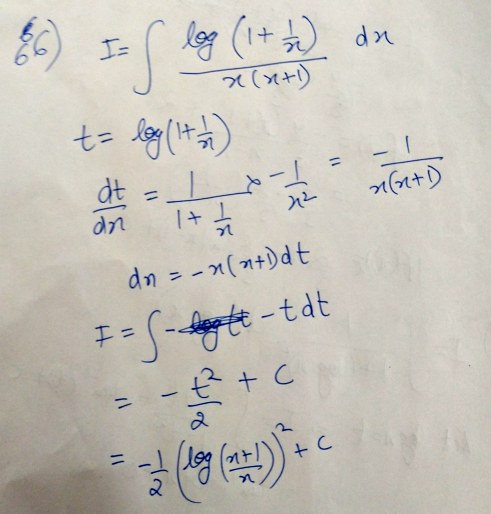 66) I = ∫ log (1 + 1/x) / x(x+1) dx
t = log(1 + 1/x)
dt/dx = 1/(1 + 1/x) × -1/x² = -1/x(x+1)
dx = -x(x+1)dt
I = ∫ - t dt
= - t²/2 + C
= -1/2 (log((x+1)/x))² + C